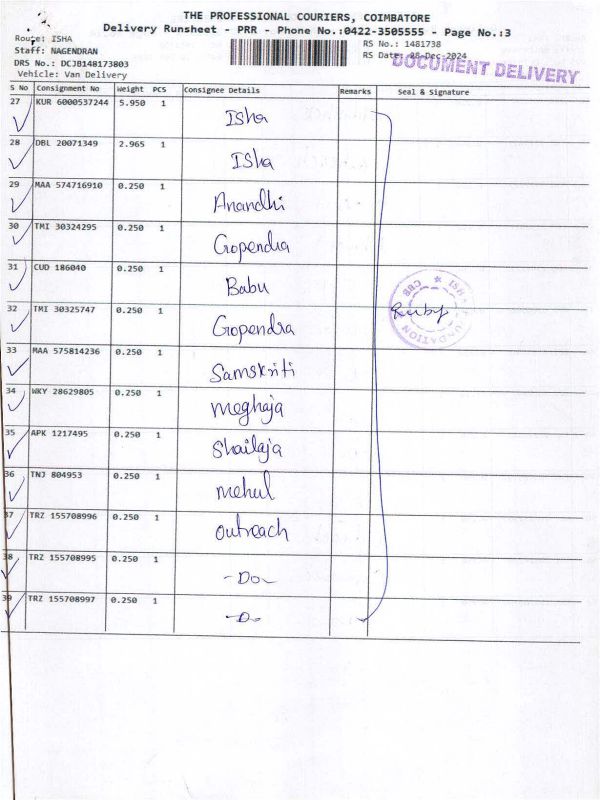 THE PROFESSIONAL COURIERS, COIMBATORE
Delivery Runsheet - PRR - Phone No.:0422-3505555 - Page No.:3
Route: ISHA
RS No.: 1481738
Staff: NAGENDRAN
RS Date: 28-Dec-2024
DOCUMENT DELIVERY
DRS No.: DCJB148173803
Vehicle: Van Delivery
S No Consignment No Weight PCS Consignee Details Remarks Seal & Signature
27 KUR 6000537244 5.950 1 Isha
28 DBL 20071349 2.965 1 Isha
29 MAA 574716910 0.250 1 Anandhi
30 TMI 30324295 0.250 1 Gopendra
31 CUD 186040 0.250 1 Babu
32 TMI 30325747 0.250 1 Gopendra
ISHA FOUNDATION CBB
33 MAA 575814236 0.250 1 Samskriti
34 WKY 28629805 0.250 1 meghaja
35 APK 1217495 0.250 1 Shailaja
36 TNJ 804953 0.250 1 mehul
37 TRZ 155708996 0.250 1 outreach
38 TRZ 155708995 0.250 1 -Do-
39 TRZ 155708997 0.250 1 -Do